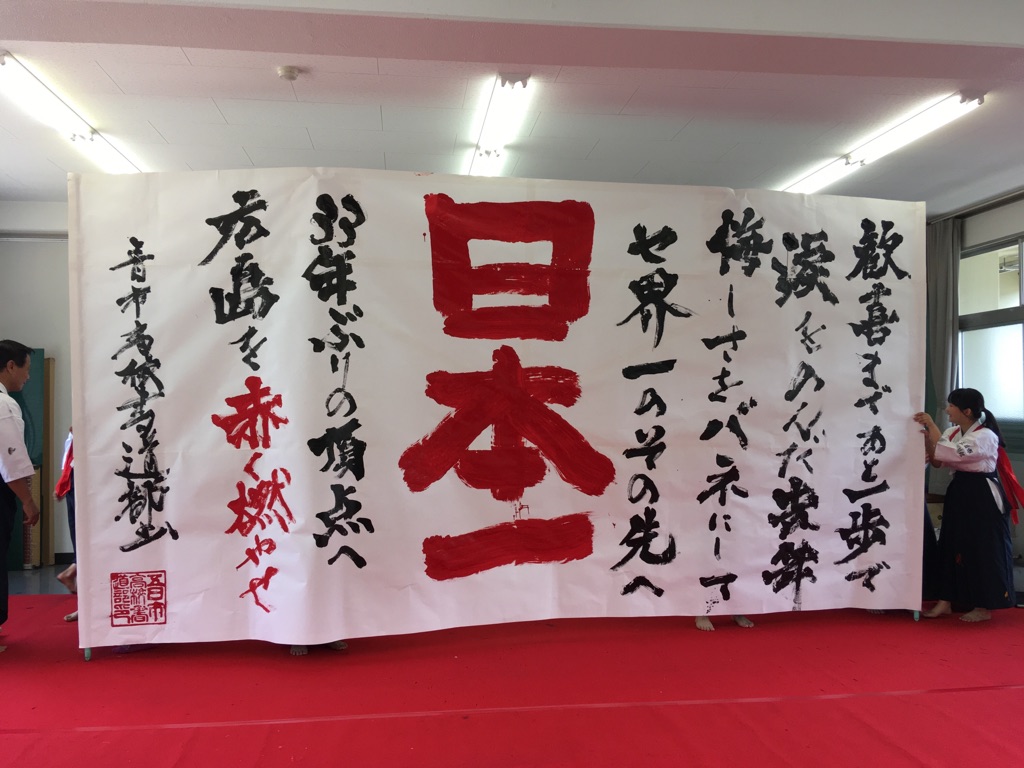 歓喜まであと一歩で
涙をのんだ
悔しさをバネにして
世界一のその先へ
日本一
33年ぶりの頂点へ
広島を赤く燃やせ
音戸高校書道部
音戸高校書道部印